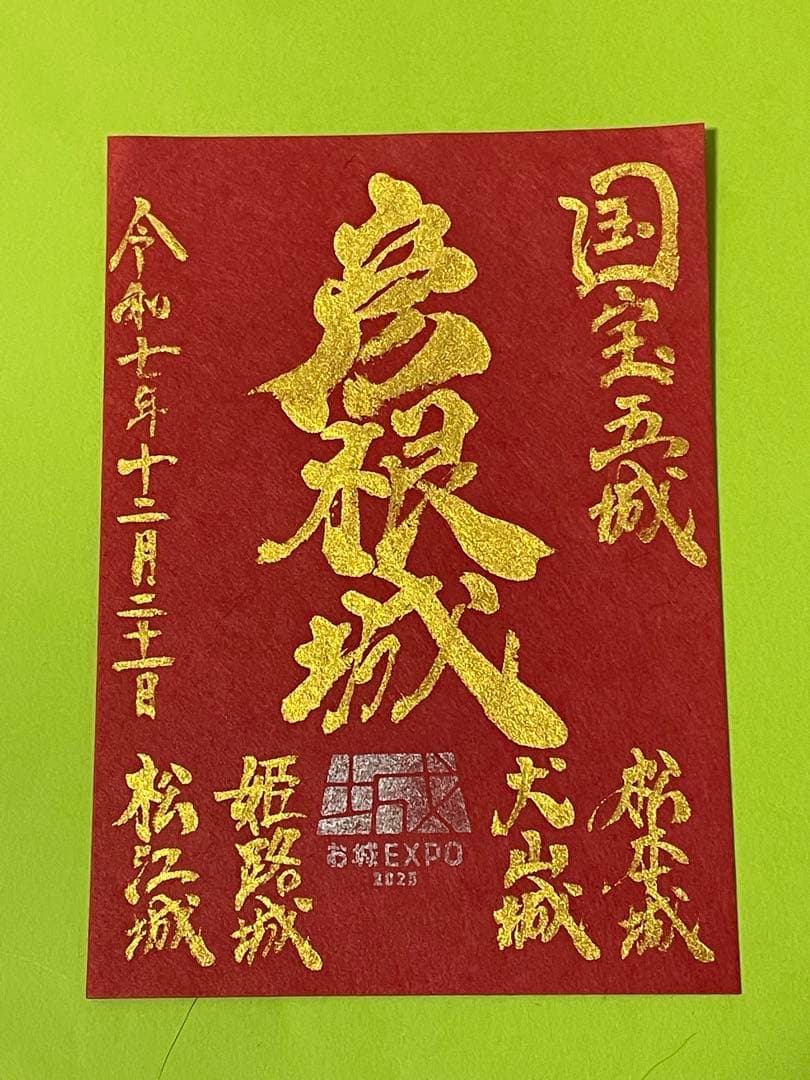 国宝五城
彦根城
令和七年十二月二十一日
松本城
犬山城
城
お城EXPO
2025
姫路城
松江城